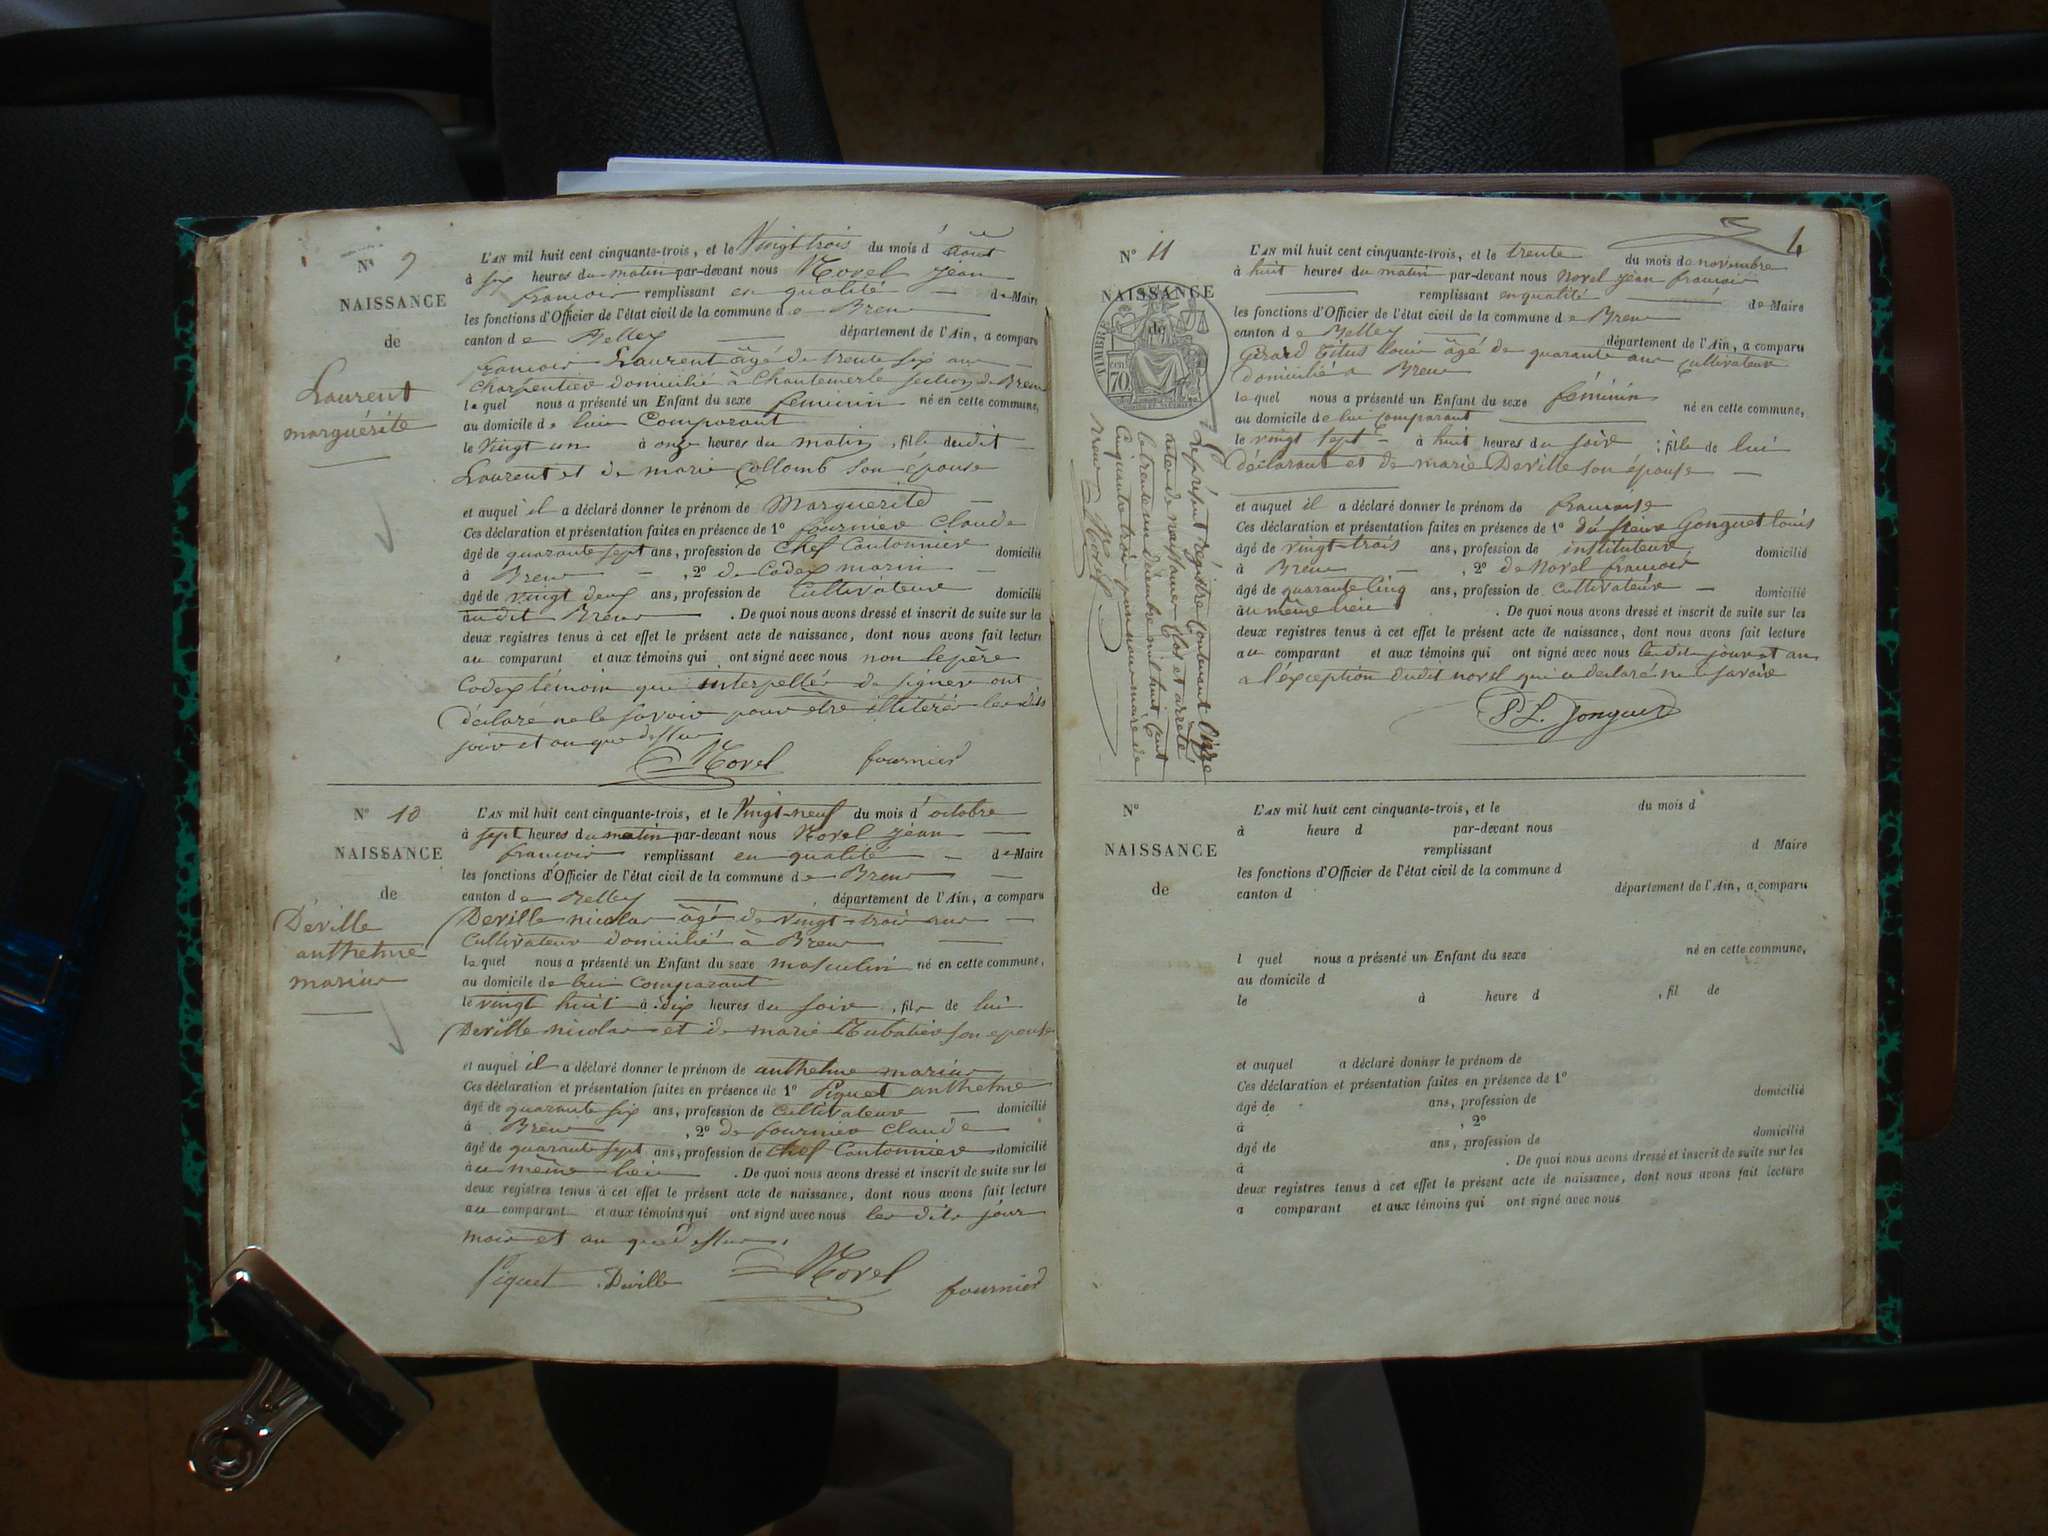 N° 9
NAISSANCE
de
Laurent
marguérite
L'AN mil huit cent cinquante-trois, et le Vingt trois du mois d'août
à six heures du matin par-devant nous Norel jean
francois remplissant en qualité de Maire
les fonctions d'Officier de l'état civil de la commune de Brens
canton de Belley département de l'Ain, a comparu
francois Laurent âgé de trente six ans
Charpentier domicilié à Chantemerle section de Brens
lequel nous a présenté un Enfant du sexe feminin né en cette commune,
au domicile de lui Comparant
le Vingt un à onze heures du matin, fille dudit
Laurent et de marie Collomb son épouse
et auquel il a déclaré donner le prénom de Marguerite
Ces déclaration et présentation faites en présence de 1° fournier Claude
âgé de quarante sept ans, profession de Chef Cantonnier domicilié
à Brens , 2° de Codex marin
âgé de vingt deux ans, profession de Cultivateur domicilié
audit Brens . De quoi nous avons dressé et inscrit de suite sur les
deux registres tenus à cet effet le présent acte de naissance, dont nous avons fait lecture
au comparant et aux témoins qui ont signé avec nous non le père
Codex témoin qui interpellés de signer ont
déclaré ne le savoir pour être illitérés les dits
jour et an que dessus
Norel fournier
N° 10
NAISSANCE
de
Déville
anthelme
marius
L'AN mil huit cent cinquante-trois, et le Vingt-neuf du mois d'octobre
à sept heures du matin par-devant nous Norel jean
francois remplissant en qualité de Maire
les fonctions d'Officier de l'état civil de la commune de Brens
canton de Belley département de l'Ain, a comparu
Deville nicolas âgé de vingt-trois ans
Cultivateur domicilié à Brens
lequel nous a présenté un Enfant du sexe masculin né en cette commune,
au domicile de lui Comparant
le vingt huit à dix heures du soir, fils de lui
Deville nicolas et de marie son epouse
et auquel il a déclaré donner le prénom de anthelme marius
Ces déclaration et présentation faites en présence de 1° Piquet anthelme
âgé de quarante six ans, profession de cultivateur domicilié
à Brens , 2° de fournier Claude
âgé de quarante sept ans, profession de Chef Cantonnier domicilié
au même lieu . De quoi nous avons dressé et inscrit de suite sur les
deux registres tenus à cet effet le présent acte de naissance, dont nous avons fait lecture
au comparant et aux témoins qui ont signé avec nous les dits jour
mois et an que dessus.
Piquet Deville Norel fournier
4
N° 11
NAISSANCE
de
TIMBRE
70
Le présent régistre Contenant Onze
actes de naissance Clos et arreté
le trente un décembre mil huit Cent
Cinquante trois par nous maire de
Brens
Norel
L'AN mil huit cent cinquante-trois, et le trente du mois de novembre
à huit heures du matin par-devant nous Norel jean francois
remplissant en qualité de Maire
les fonctions d'Officier de l'état civil de la commune de Brens
canton de Belley département de l'Ain, a comparu
Gérard Titus louis âgé de quarante ans Cultivateur
domicilié à Brens
lequel nous a présenté un Enfant du sexe féminin né en cette commune,
au domicile de lui Comparant
le vingt sept à huit heures du soir ; fille de lui
déclarant et de marie Deville son épouse
et auquel il a déclaré donner le prénom de francoise
Ces déclaration et présentation faites en présence de 1° du sieur Gonguet louis
âgé de vingt-trois ans, profession de instituteur domicilié
à Brens , 2° de Norel francois
âgé de quarante Cinq ans, profession de Cultivateur domicilié
au même lieu . De quoi nous avons dressé et inscrit de suite sur les
deux registres tenus à cet effet le présent acte de naissance, dont nous avons fait lecture
au comparant et aux témoins qui ont signé avec nous les dits jour et an
à l'éxception dudit norel qui a declaré ne le savoir
P L. Gonguet
N°
NAISSANCE
de
L'AN mil huit cent cinquante-trois, et le du mois d
à heure d par-devant nous
remplissant d Maire
les fonctions d'Officier de l'état civil de la commune d
canton d département de l'Ain, a comparu
l quel nous a présenté un Enfant du sexe né en cette commune,
au domicile d
le à heure d , fil de
et auquel a déclaré donner le prénom de
Ces déclaration et présentation faites en présence de 1°
âgé de ans, profession de domicilié
à , 2°
âgé de ans, profession de domicilié
à . De quoi nous avons dressé et inscrit de suite sur les
deux registres tenus à cet effet le présent acte de naissance, dont nous avons fait lecture
a comparant et aux témoins qui ont signé avec nous